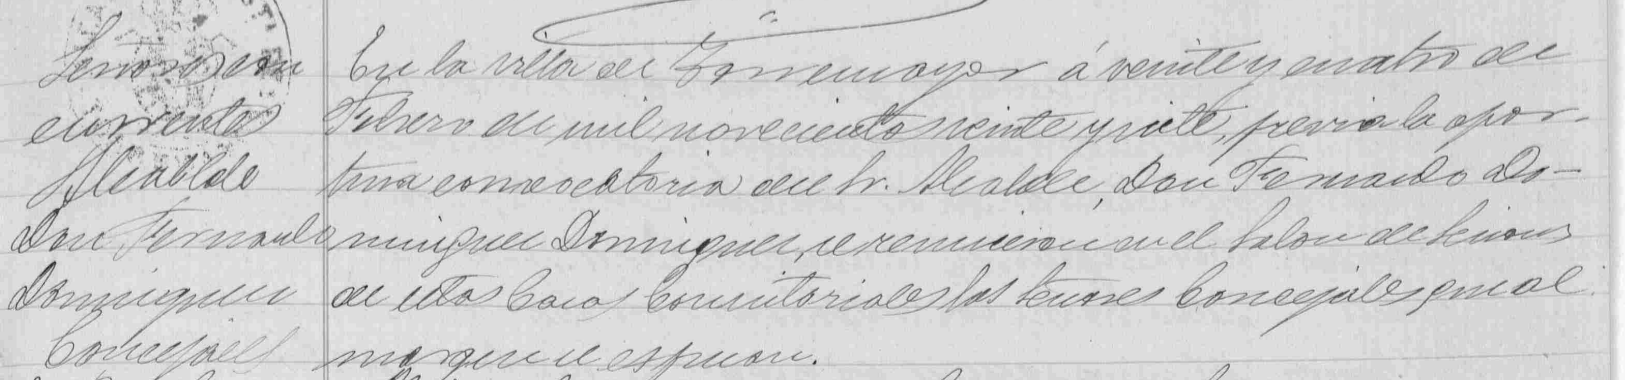 Señores con
currentes
Alcalde
Don Fernando
Dominguez
Concejales
En la villa de Torremayor á veinte y cuatro de
Febrero de mil novecientos veinte y siete, previa la opor-
tuna convocatoria del Sr. Alcalde, Don Fernando Do-
minguez Dominguez, se reunieron en el Salon de sesiones
de estas Casas Consitoriales los señores Concejales que al
margen se espresan.